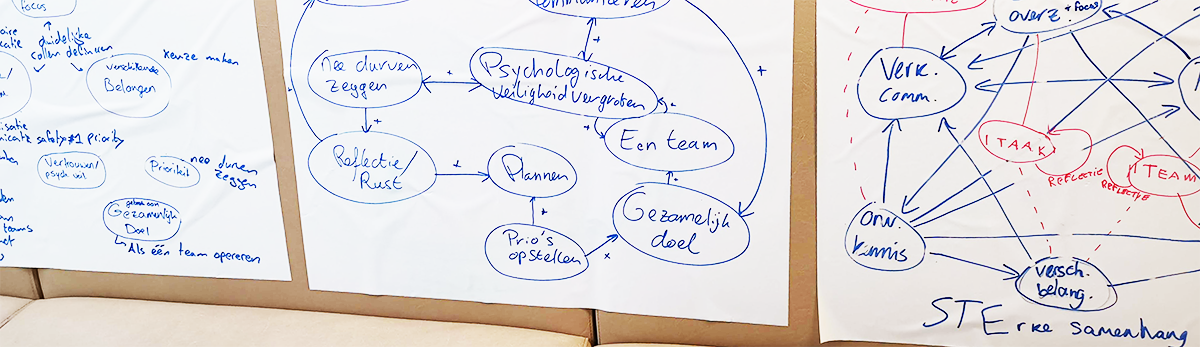 focus
duidelijke
verschillende
Belangen
keuze maken
safety #1 priority
Vertrouwen/
psych veil
Prioriteit
nee durven
zeggen
gebrek aan
Gezamenlijk
Doel
Als één team opereren
nee durven
zeggen
Psychologische
veiligheid vergroten
Een team
Reflectie/
Rust
Plannen
Gezamelijk
doel
Prio's
opstellen
overz.
+ focus
Verk.
Comm.
TAAK
REFLECTIE
TEAM
REFLECTIE
Onw.
kennis
Versch.
belang.
STErke samenhang